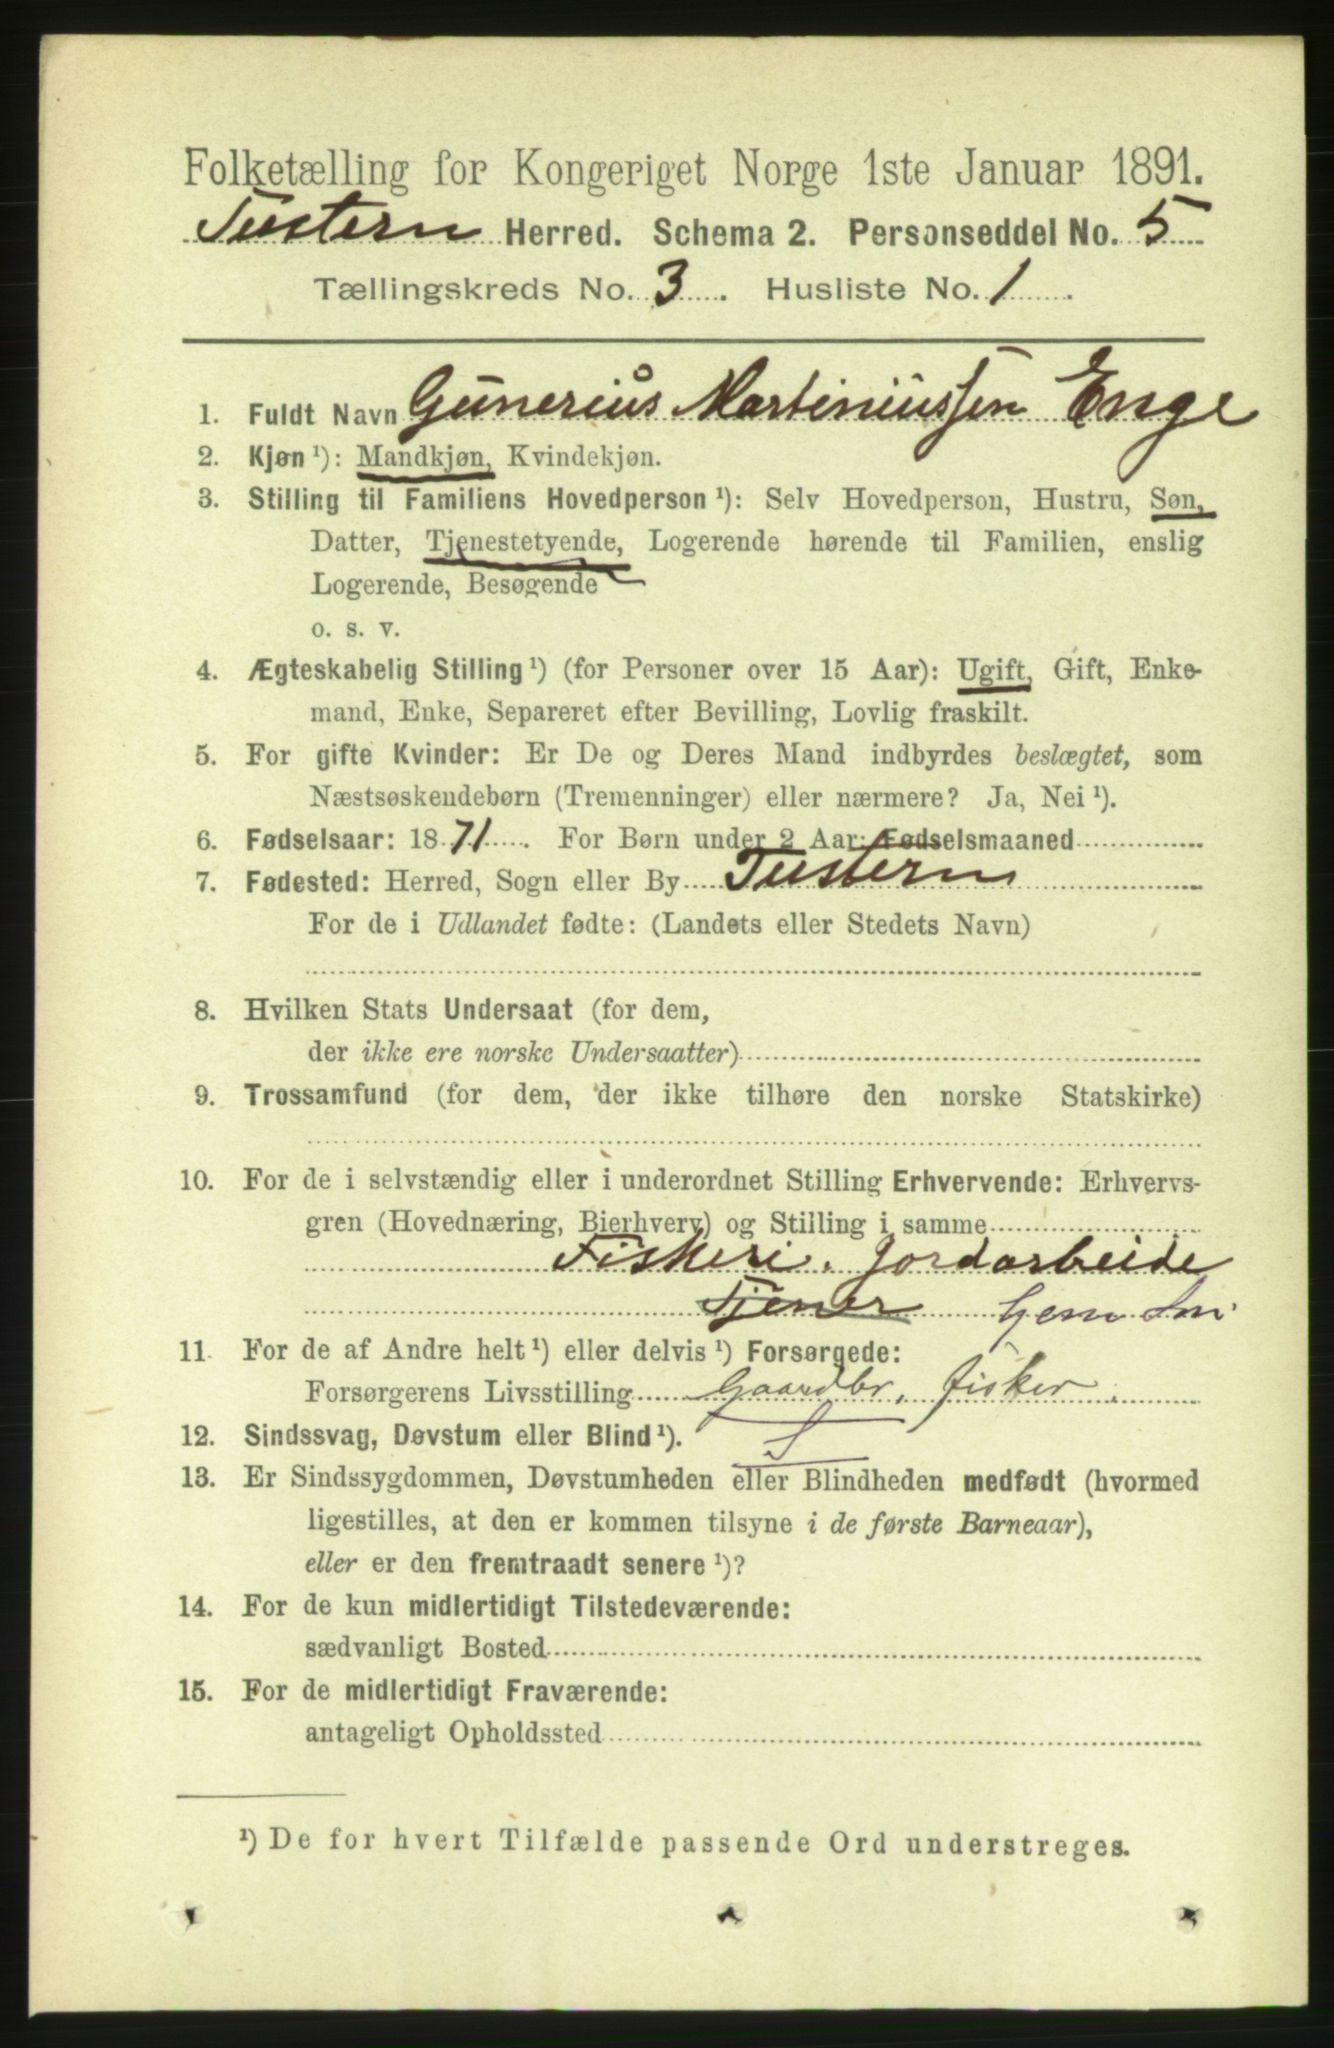 Folketælling for Kongeriget Norge 1ste Januar 1891.
Tustern Herred. Schema 2. Personseddel No. 5
Tællingskreds No. 3. Husliste No. 1.
1. Fuldt Navn Gunerius Martiniussen Enge
2. Kjøn ¹): Mandkjøn, Kvindekjøn.
3. Stilling til Familiens Hovedperson ¹): Selv Hovedperson, Hustru, Søn,
Datter, Tjenestetyende, Logerende hørende til Familien, enslig
Logerende, Besøgende
o. s. v.
4. Ægteskabelig Stilling ¹) (for Personer over 15 Aar): Ugift, Gift, Enke-
mand, Enke, Separeret efter Bevilling, Lovlig fraskilt.
5. For gifte Kvinder: Er De og Deres Mand indbyrdes beslægtet, som
Næstsøskendebørn (Tremenninger) eller nærmere? Ja, Nei ¹).
6. Fødselsaar: 1871. For Børn under 2 Aar: Fødselsmaaned
7. Fødested: Herred, Sogn eller By Tustern
For de i Udlandet fødte: (Landets eller Stedets Navn)
8. Hvilken Stats Undersaat (for dem,
der ikke ere norske Undersaatter)
9. Trossamfund (for dem, der ikke tilhøre den norske Statskirke)
10. For de i selvstændig eller i underordnet Stilling Erhvervende: Erhvervs-
gren (Hovednæring, Bierhverv) og Stilling i samme
Fiskeri. Jordarbeide
Tjener
11. For de af Andre helt ¹) eller delvis ¹) Forsørgede:
Forsørgerens Livsstilling Gaardbr. fisker.
12. Sindssvag, Døvstum eller Blind ¹).
S
13. Er Sindssygdommen, Døvstumheden eller Blindheden medfødt (hvormed
ligestilles, at den er kommen tilsyne i de første Barneaar),
eller er den fremtraadt senere ¹)?
14. For de kun midlertidigt Tilstedeværende:
sædvanligt Bosted
15. For de midlertidigt Fraværende:
antageligt Opholdssted
¹) De for hvert Tilfælde passende Ord understreges.